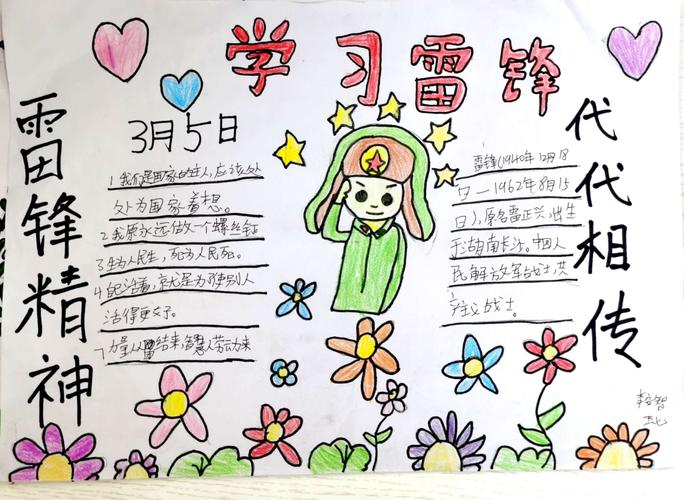 学习雷锋
雷锋精神
3月5日
1我们是国家的主人,应该处
处为国家着想。
2我愿永远做一个螺丝钉
3生为人民生,死为人民死。
4自己活着,就是为了使别人
活得更好。
7力量从团结来,智慧从劳动来
雷锋(1940年12月18
日—1962年8月15
日),原名雷正兴,出生
于湖南长沙。中国人
民解放军战士,共
产主义战士。
代代相传